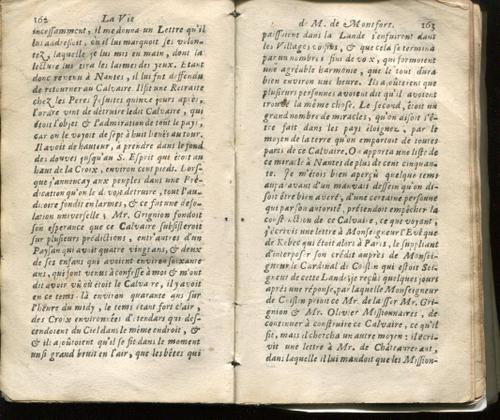 162 La Vie
incessamment, il me donna un Lettre qu'il
lui addressoit, où il lui marquoit ses volon-
tez, laquelle je lui mis en main, dont la
lecture lui tira les larmes des yeux. Etant
donc revenu à Nantes, il lui fut deffendu
de retourner au Calvaire. Il fit une Retraite
chez les Peres Jesuites quinze jours après,
l'ordre vint de détruire ledit Calvaire, qui
étoit l'objet & l'admiration de tout le païs,
car on le voyoit de sept à huit lieuës au tour.
Il avoit de hauteur, à prendre dans le fond
des douves jusqu'au S. Esprit qui étoit au
haut de la Croix, environ cent pieds. Lors-
que j'annonçay aux peuples dans une Pré-
dication qu'on le devoit détruire, tout l'au-
ditoire fondit en larmes, & ce fut une deso-
lation universelle; Mr. Grignion fondoit
son esperance que ce Calvaire subsisteroit
sur plusieurs predictions, entr'autres d'un
Paysan qui avoit quatre vingt ans, & deux
de ses enfans qui avoient environ soixante
ans, qui sont venus à confesse à moi & m'ont
dit avoir vû où étoit le Calvaire, il y avoit
en ce tems là environ quarante ans sur
l'heure du midy, le tems étant fort clair,
des Croix environnées d'étendars qui des-
cendoient du Ciel dans le même endroit, &
& il ajoûtoient qu'il se fit dans le moment
un si grand bruit en l'air, que les bêtes qui
d' M. de Montfort. 163
paissoient dans la Lande s'enfuirent dans
les Villages voisins, & que cela se termina
par un nombre infini de voix, qui formoient
une agréable harmonie, que le tout dura
bien environ une heure. Ils ajoûterent que
plusieurs personnes avoient dit qu'il avoient
trouvé la même chose. Le second, étoit un
grand nombre de miracles, qu'on disoit s'ê-
tre fait dans les païs éloignez, par le
moyen de la terre qu'on emportoit de toutes
parts de ce Calvaire. On apporta une liste de
ce miracle à Nantes de plus de cent cinquan-
te. Je m'étois bien aperçû quelque tems
auparavant d'un mauvais dessein qu'on di-
soit être bien averé, d'une certaine personne
qui par son autorité, prétendoit empêcher la
construction de ce Calvaire, ce que voyant,
j'écrivis une lettre à Monseigneur l'Evêque
de Kebec qui étoit alors à Paris, le suppliant
d'interposer son crédit auprès de Monsei-
gneur le Cardinal de Coislin qui estoit Sei-
gneur de cette Lande; je reçûs quelques jours
après une réponse, par laquelle Monseigneur
de Coislin prioit ce Mr. de laisser Mr. Gri-
gnion & Mr. Olivier Missionnaires, de
continuer à construire ce Calvaire, ce qu'il
fit, mais il chercha un autre moyen: il écri-
vit une lettre à Mr. de Châteaurenaut,
dans laquelle il lui mandoit que les Mission-